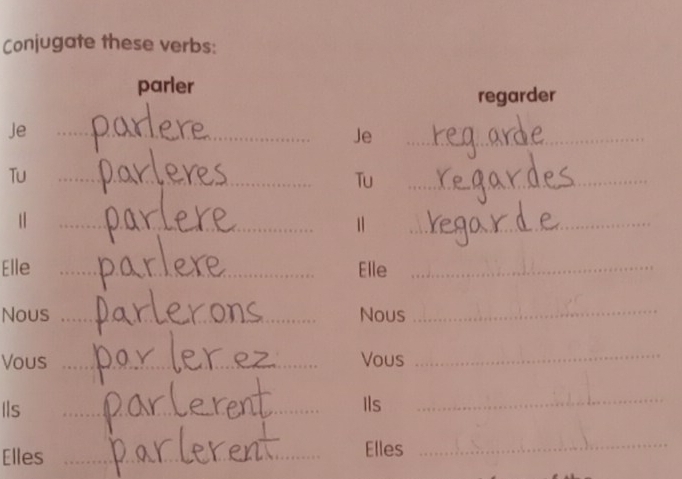 Conjugate these verbs:
parler
Je parlere
Tu parleres
Il parlere
Elle parlere
Nous parlerons
Vous parlerez
Ils parlerent
Elles parlerent
regarder
Je regarde
Tu regardes
Il regarde
Elle
Nous
Vous
Ils
Elles